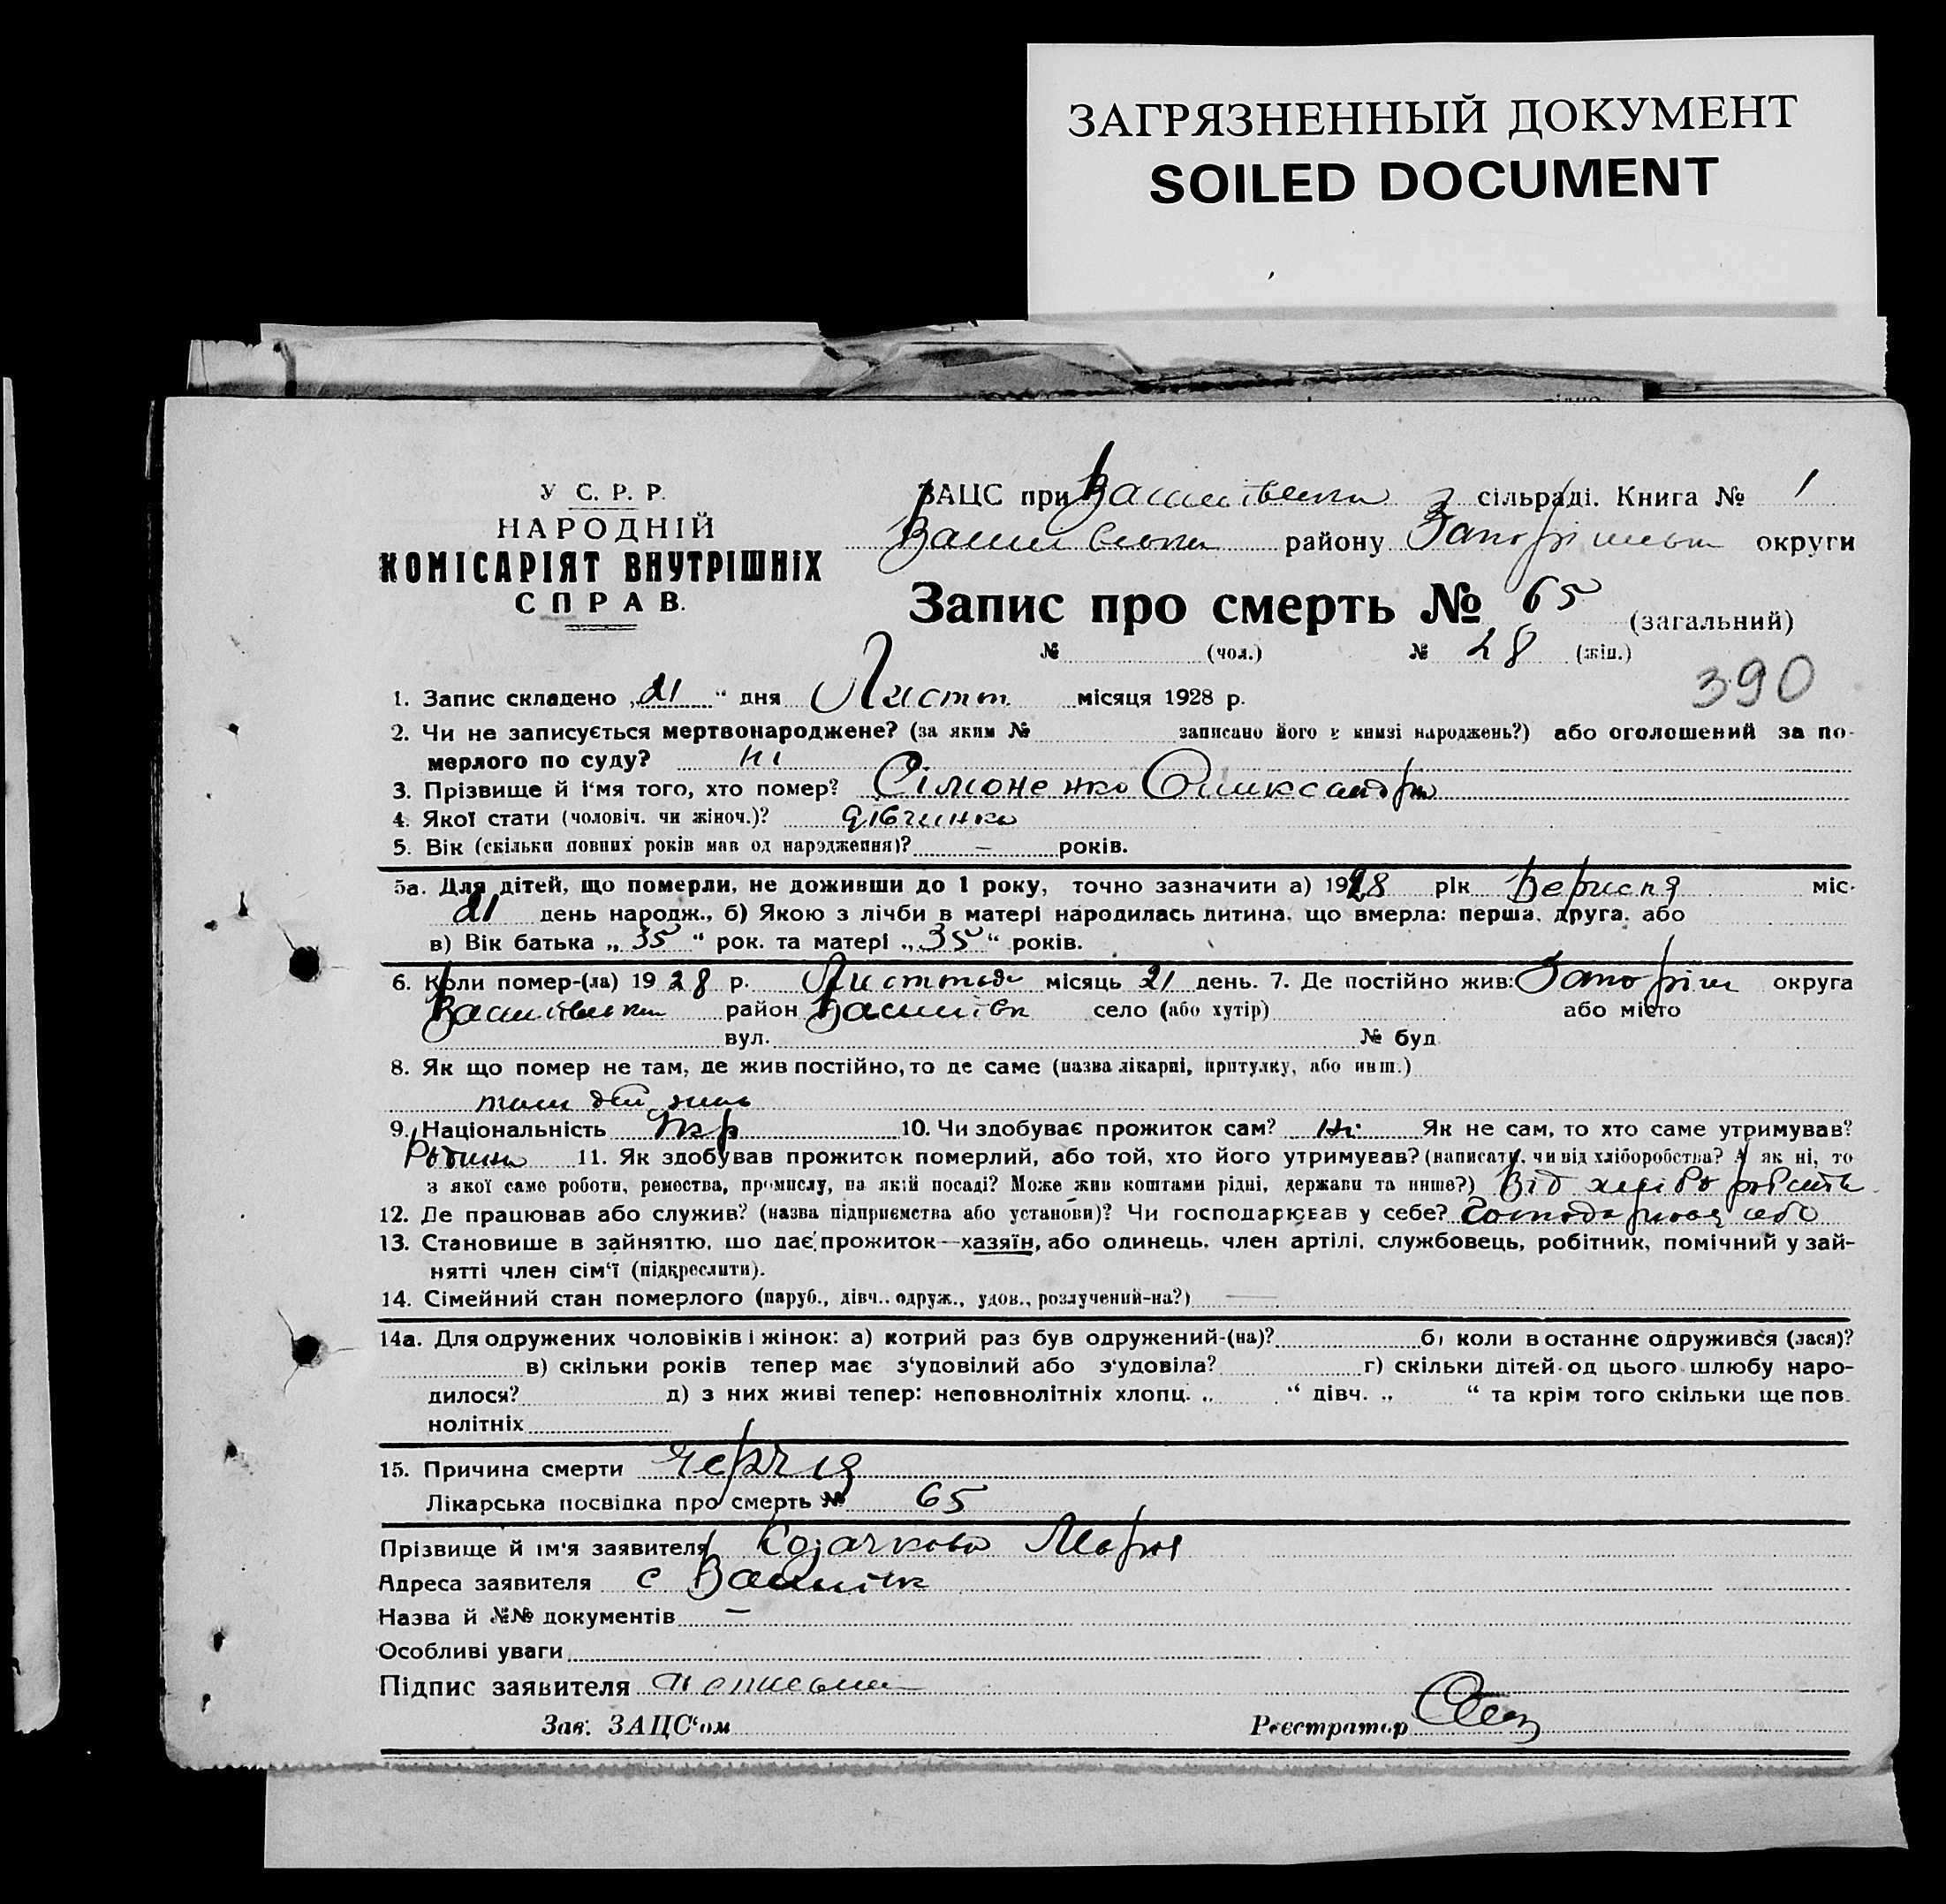 ЗАГРЯЗНЕННЫЙ ДОКУМЕНТ
SOILED DOCUMENT
У С. Р. Р.
НАРОДНІЙ
КОМІСАРІЯТ ВНУТРІШНІХ
СПРАВ.
ЗАЦС при сільраді. Книга № 1
району округи
Запис про смерть № 65 (загальний)
№ (чол.) № 28 (жін.)
390
1. Запис складено „21“ дня Листоп місяця 1928 р.
2. Чи не записується мертвонароджене? (за яким № записано його у книзі народжень?) або оголошений за по-
мерлого по суду? ні
3. Прізвище й ім'я того, хто помер? Сімоненко Олександра
4. Якої статі (чоловіч. чи жіноч.)? дівчинка
5. Вік (скільки повних років мав од народження)? — років.
5а. Для дітей, що померли, не доживши до 1 року, точно зазначити а) 1928 рік Вересня міс.
21 день народж., б) Якою з лічби в матері народилась дитина, що вмерла: перша, друга, або
в) Вік батька „35“ рок. та матері „35“ років.
6. Коли помер-(ла) 1928 р. Листопад місяць 21 день. 7. Де постійно жив: Запоріж округа
район село (або хутір) або місто
вул. № буд
8. Як що помер не там, де жив постійно, то де саме (назва лікарні, притулку, або инш.)
9. Національність Укр 10. Чи здобуває прожиток сам? Ні Як не сам, то хто саме утримував?
Родина 11. Як здобував прожиток померлий, або той, хто його утримував? (написати, чи від хліборобства? А як ні, то
з якої саме роботи, ремества, промислу, на якій посаді? Може жив коштами рідні, держави та инше?) Від хліборобств
12. Де працював або служив? (назва підприємства або установи)? Чи господарював у себе?
13. Становище в зайняттю, що дає прожиток—хазяїн, або одинець, член артілі, службовець, робітник, помічний у зай-
нятті член сім'ї (підкреслити).
14. Сімейний стан померлого (паруб., дівч., одруж., удов., розлучений-на?) —
14а. Для одружених чоловіків і жінок: а) котрий раз був одружений-(на)? б) коли востаннє одружився (лася)?
в) скільки років тепер має з'удовілий або з'удовіла? г) скільки дітей од цього шлюбу наро-
дилося? д) з них живі тепер: неповнолітніх хлопц. „ “ дівч. „ “ та крім того скільки ще пов-
нолітніх
15. Причина смерти
Лікарська посвідка про смерть № 65
Прізвище й ім'я заявителя Козачкова Мария
Адреса заявителя с
Назва й №№ документів —
Особливі уваги
Підпис заявителя
Зав. ЗАЦС'ом Реєстратор